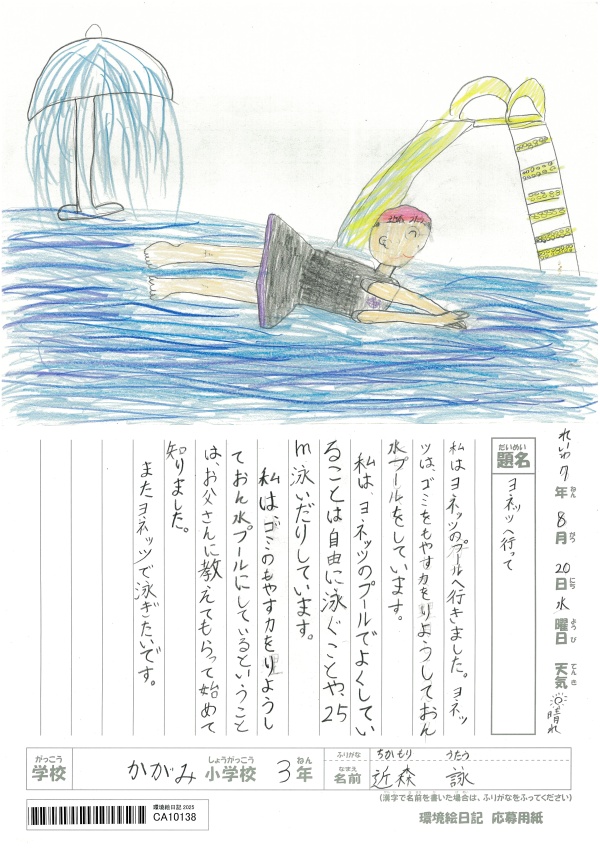 れいわ7年ねん8月がつ20日にち水曜日ようび天気てんき晴れ
だいめい
題名
ヨネッツへ行って
私はヨネッツのプールへ行きました。ヨネッ
ツは、ゴミをもやす力をりようしておん
水プールをしています。
私は、ヨネッツのプールでよくしてい
ることは自由に泳ぐことや、25
m泳いだりしています。
私は、ゴミのもやす力をりようし
ておん水プールにしているということ
は、お父さんに教えてもらって始めて
知りました。
またヨネッツで泳ぎたいです。
がっこう
学校
かがみ
しょうがっこう
小学校
3
ねん
年
ふりがな
ちかもり うたう
なまえ
名前
近森 詠
(漢字で名前を書いた場合は、ふりがなをふってください)
環境絵日記 2025
CA10138
環境絵日記 応募用紙